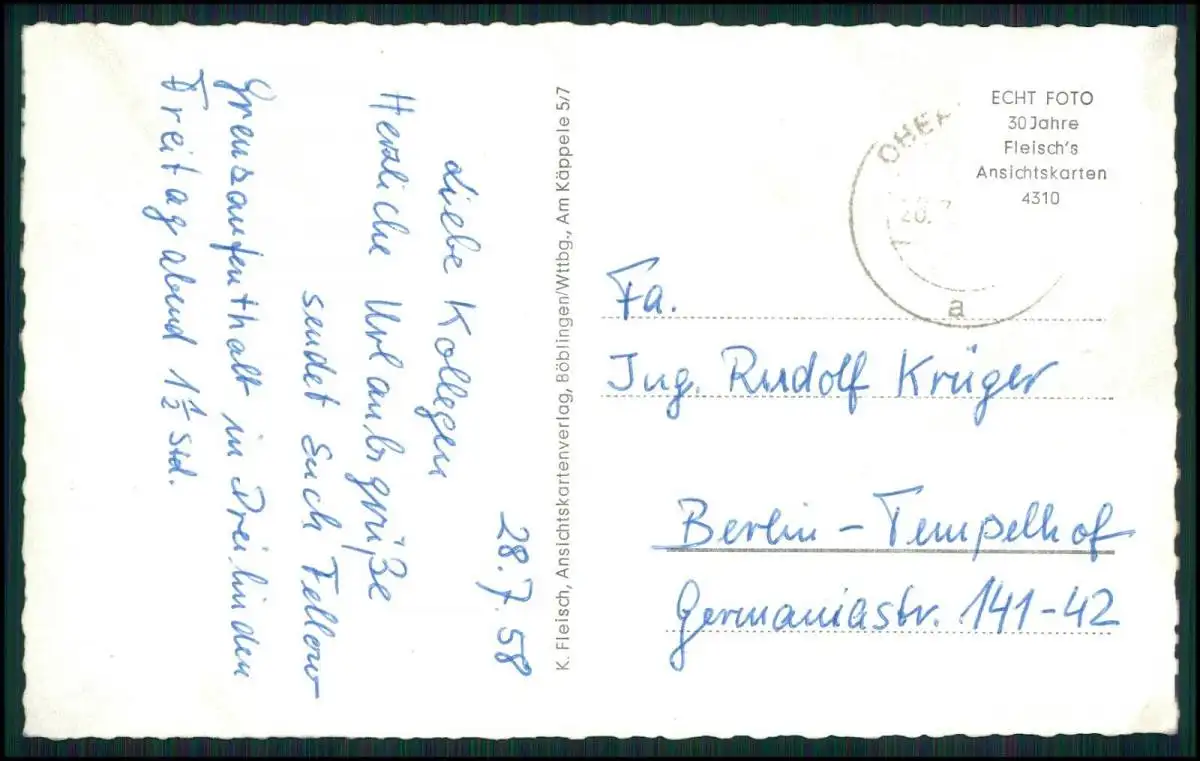 28.7.58
Liebe Kollegen
Herzliche Urlaubsgrüße
sendet Euch Fellow
Grenzaufenthalt in Dreilinden
Freitag abend 1 1/2 Std.
K. Fleisch, Ansichtskartenverlag, Böblingen/Wttbg., Am Käppele 5/7
ECHT FOTO
30 Jahre
Fleisch's
Ansichtskarten
4310
a
Fa.
Jng. Rudolf Krüger
Berlin – Tempelhof
Germaniastr. 141-42